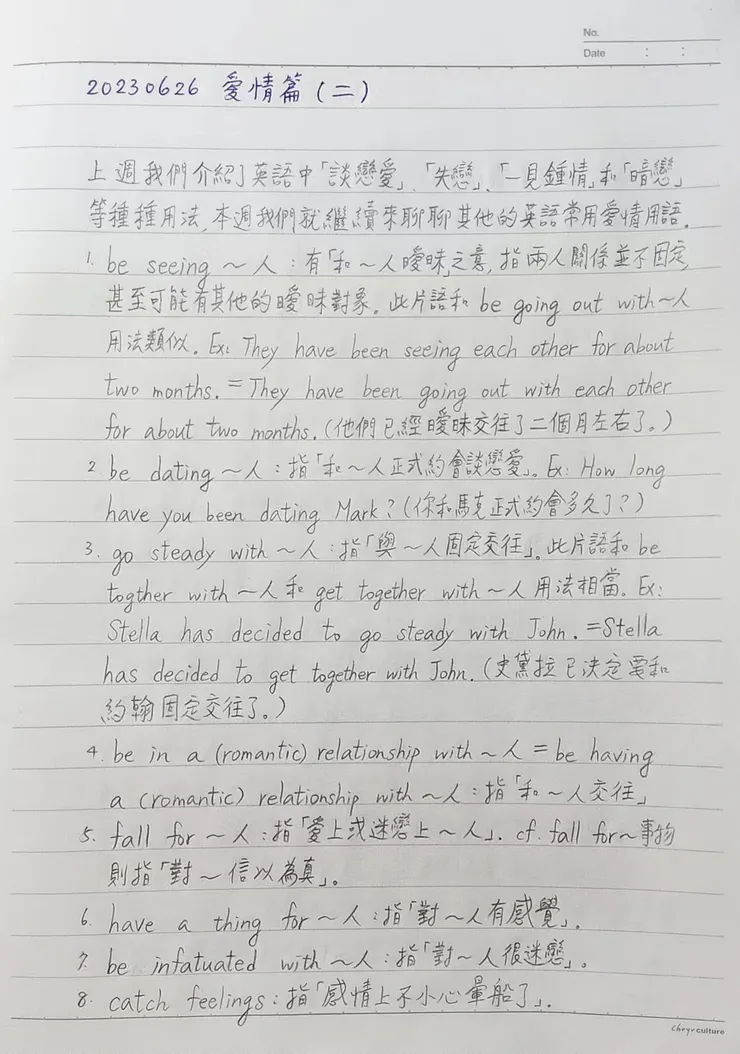 No.
Date : :
20230626 愛情篇(二)
上週我們介紹了英語中「談戀愛」、「失戀」、「一見鍾情」和「暗戀」
等種種用法,本週我們就繼續來聊聊其他的英語常用愛情用語。
1. be seeing ~人:有「和~人曖昧」之意,指兩人關係並不固定,
甚至可能有其他的曖昧對象。此片語和 be going out with~人
用法類似。Ex: They have been seeing each other for about
two months.=They have been going out with each other
for about two months.(他們已經曖昧交往了二個月左右了。)
2. be dating ~人:指「和~人正式約會談戀愛」。Ex: How long
have you been dating Mark?(你和馬克正式約會多久了?)
3. go steady with ~人:指「與~人固定交往」。此片語和 be
togther with ~人和 get together with ~人用法相當。Ex:
Stella has decided to go steady with John.=Stella
has decided to get together with John.(史黛拉已決定要和
約翰固定交往了。)
4. be in a (romantic) relationship with ~人 = be having
a (romantic) relationship with ~人:指「和~人交往」
5. fall for ~人:指「愛上或迷戀上~人」. cf. fall for~事物
則指「對~信以為真」。
6. have a thing for ~人:指「對~人有感覺」.
7. be infatuated with ~人:指「對~人很迷戀」。
8. catch feelings:指「感情上不小心暈船了」.
Chuyu culture